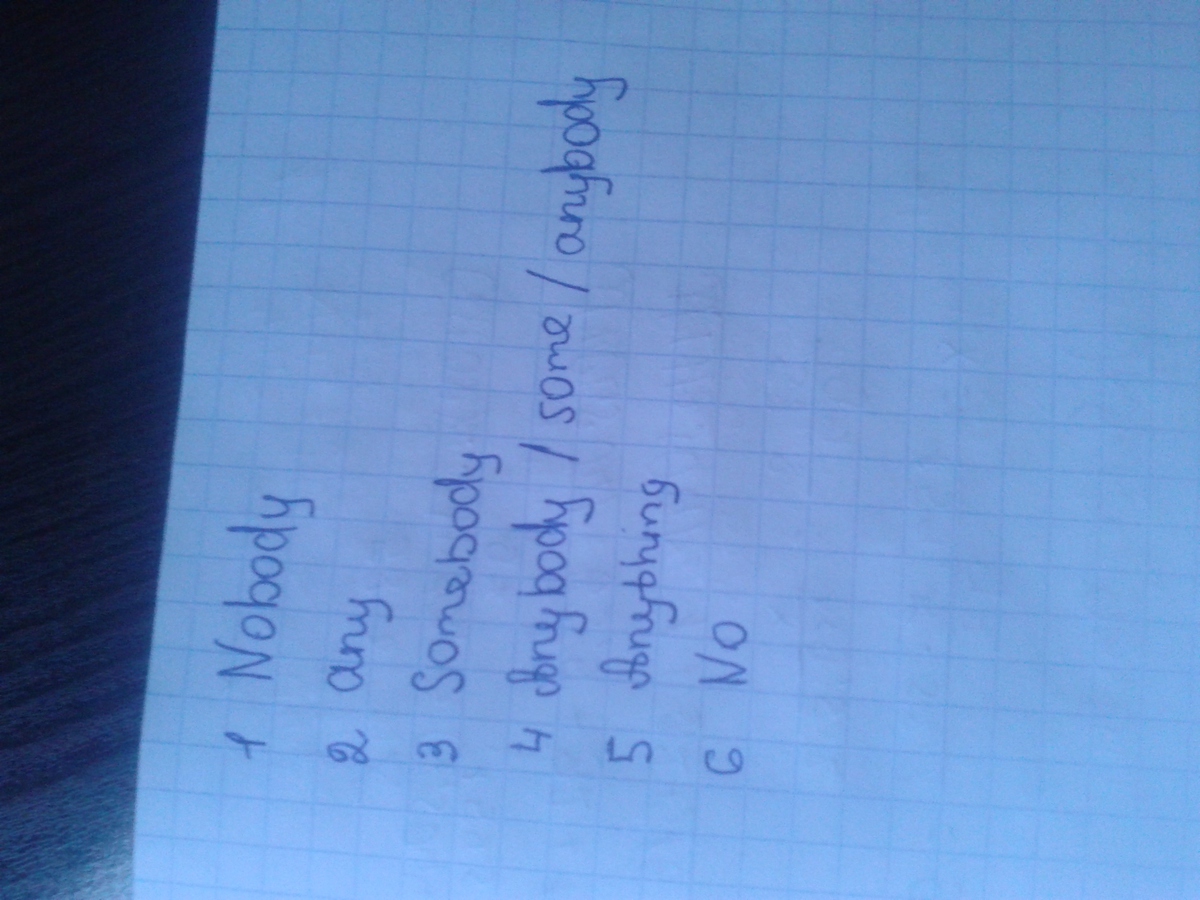 1 Nobody
2 any
3 Somebody
4 Anybody / some / anybody
5 Anything
6 No